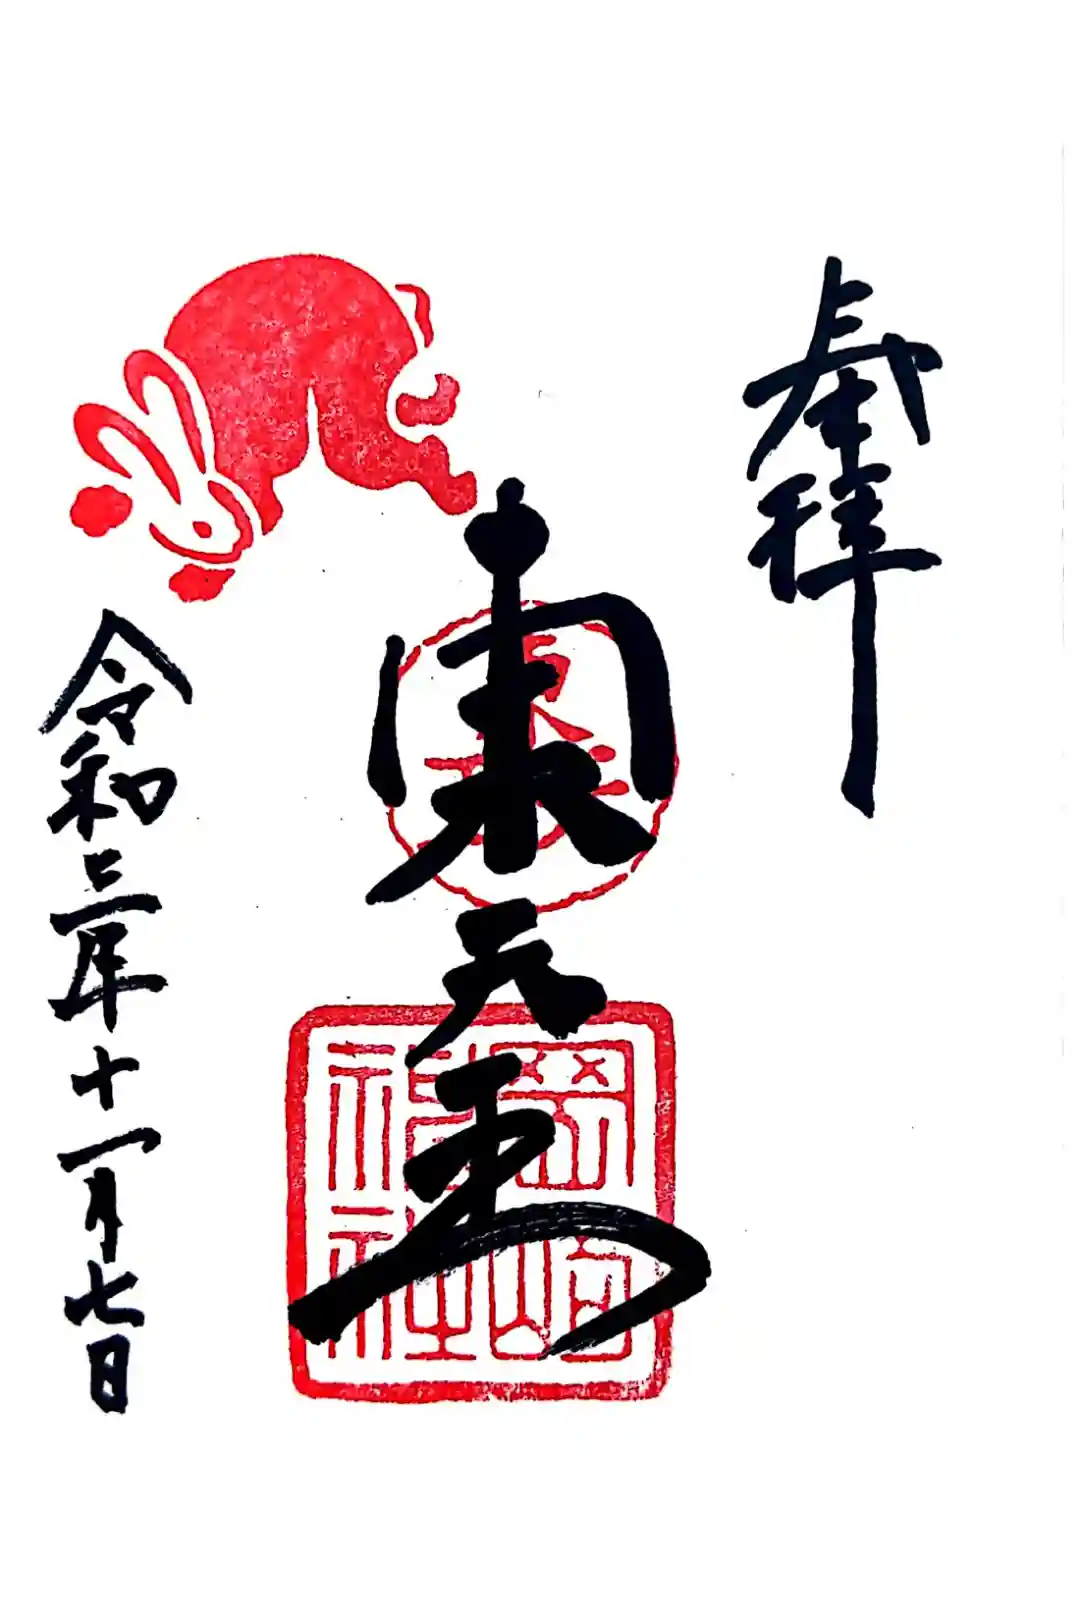 奉拝
東天王
岡崎
神社
令和三年十一月七日